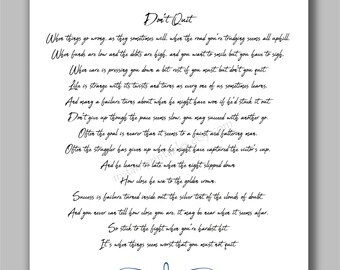 Don't Quit
When things go wrong, as they sometimes will, when the road you're trudging seems all uphill.
When funds are low and the debts are high, and you want to smile but you have to sigh.
When care is pressing you down a bit, rest if you must, but don't you quit.
Life is strange with its twists and turns as every one of us sometimes learns.
And many a failure turns about when he might have won if he'd stuck it out.
Don't give up though the pace seems slow, you may succeed with another go.
Often the goal is nearer than it seems to a faint and faltering man.
Often the struggler has given up when he might have captured the victor's cup.
And he learned too late when the night slipped down.
How close he was to the golden crown.
Success is failure turned inside out, the silver tint of the clouds of doubt.
And you never can tell how close you are, it may be near when it seems afar.
So stick to the fight when you're hardest hit.
It's when things seem worst that you must not quit.